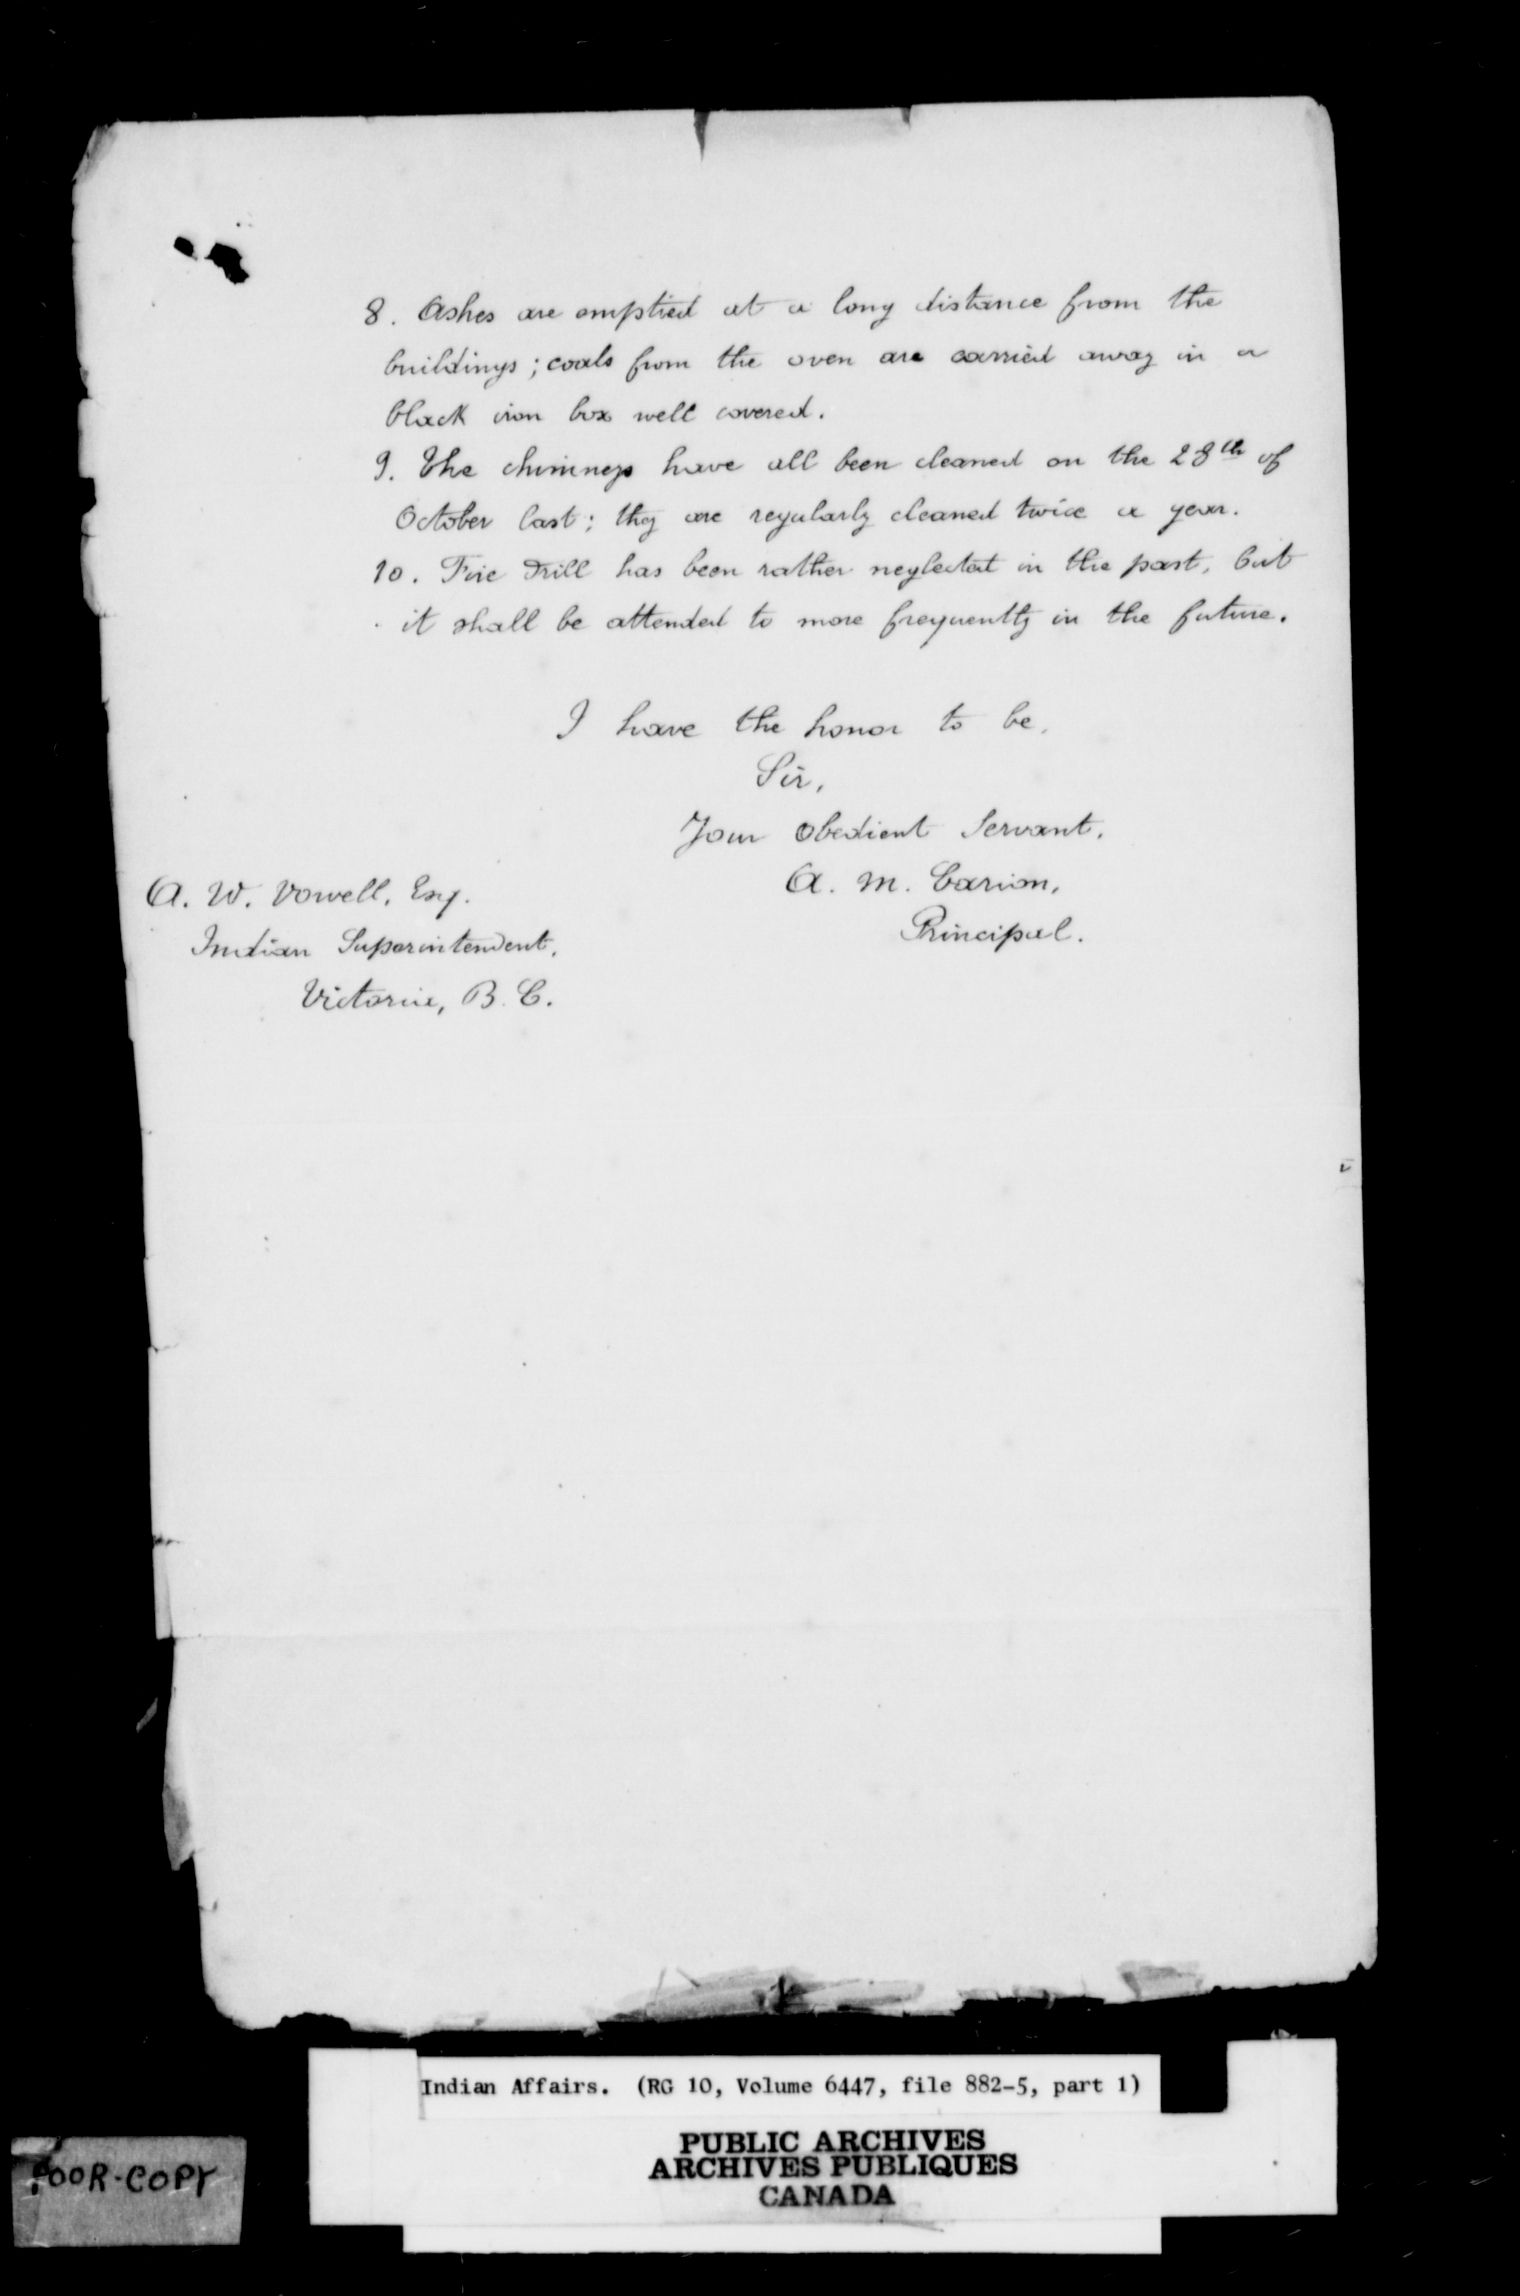 8. Ashes are emptied at a long distance from the
buildings; coals from the oven are carried away in a
black iron box well covered.
9. The chimneys have all been cleaned on the 28th of
October last; they are regularly cleaned twice a year.
10. Fire Drill has been rather neglected in the past, but
it shall be attended to more frequently in the future.
I have the honor to be,
Sir,
Your Obedient Servant,
A. M. Carion,
Principal.
A. W. Vowell, Esq.
Indian Superintendent,
Victoria, B. C.
Indian Affairs. (RG 10, Volume 6447, file 882-5, part 1)
PUBLIC ARCHIVES
ARCHIVES PUBLIQUES
CANADA
POOR-COPY